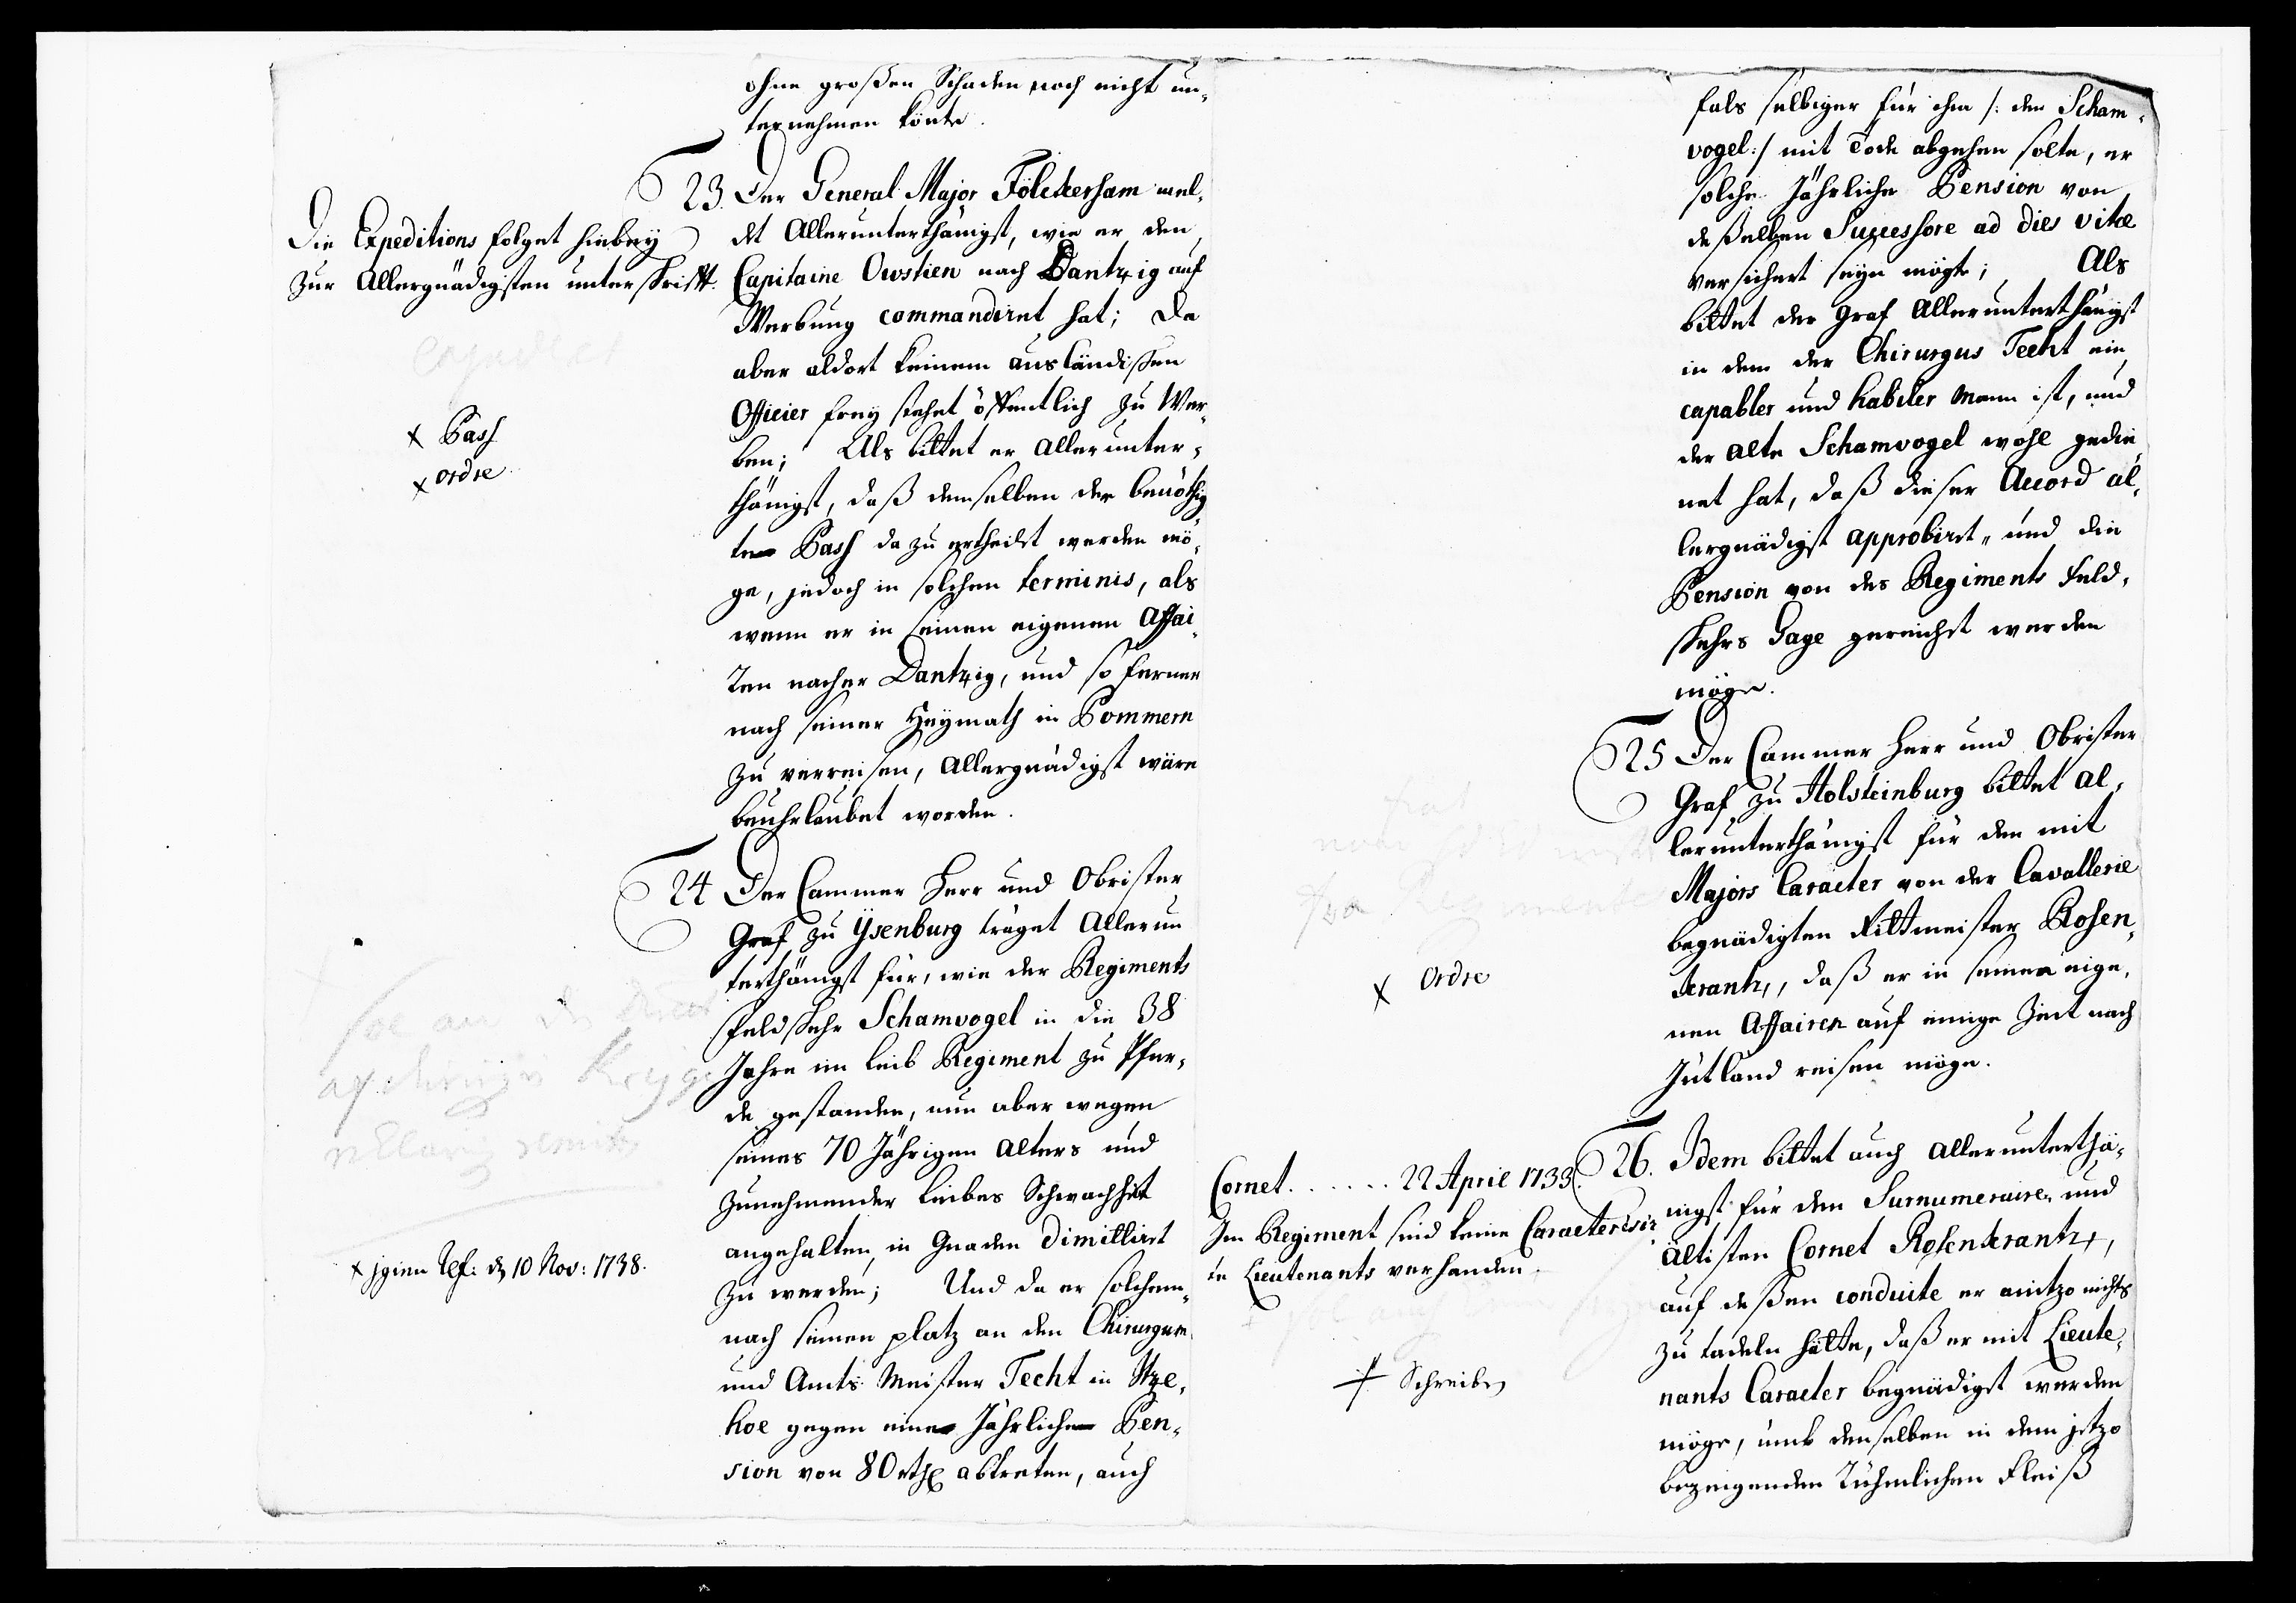 ohne großen Schaden noch nicht un-
ternehmen könte.
23. Der General Major Fölckersham mel-
det Allerunterthänigst, wie er den
Capitaine Owstien nach Dantzig auf
Werbung commandiret hat; Da
aber aldort keinem ausländischen
Officier frey stehet öffentlich zu Wer-
ben; Als bittet er Allerunter-
thänigst, daß demselben der benöthig
te Pass dazu ertheilet werden mö-
ge, jedoch in solchen terminis, als
wenn er in seinen eigenen Affai-
ren nacher Dantzig, und so ferner
nach seiner Heymath in Pommern
zu verreisen, Allergnädigst wäre
beuhrlaubet worden.
Die Expeditions folget hiebey
zur Allergnädigsten unterschrifft.
x Pass
x ordre
24 Der Cammer Herr und Obrister
Graf zu Ysenburg träget Allerun
terthänigst für, wie der Regiments
Feldscher Schamvogel in die 38
Jahre im Leib Regiment zu Pfer-
de gestanden, nun aber wegen
seines 70 Jährigen Alters und
zunehmender Leibes Schwachheit
angehalten, in Gnaden dimittirt
zu werden; Und da er solchem-
nach seinen platz an den Chirurgum
und Amts Meister Techt in Itze-
hoe gegen eine Jährliche Pen-
sion von 80 rthl abtreten, auch
x igien Ref: d 10 Nov: 1738.
fals selbiger für ihm /: den Scham-
vogel :/ mit Tode abgehen solte, er
solche Jährliche Pension von
deßelben Successore ad dies vitæ
versichert seyn mögte; Als
bittet der Graf Allerunterthänigst
in dem der Chirurgus Techt ein
capabler und habiler Mann ist, und
der alte Schamvogel wohl gedie
net hat, daß dieser Accord al-
lergnädigst approbirt, und die
Pension von des Regiments Feld-
schers Gage gereichet werden
möge.
25 Der Cammer Herr und Obrister
Graf zu Holsteinburg bittet al-
lerunterthänigst für den mit
Majors Caracter von der Cavallerie
begnädigten Rittmeister Rosen-
krantz, daß er in seinen eige-
nen Affairen auf einige Zeit nach
Jütland reisen möge.
x Ordre
26. Idem bittet auch Allerunterthä-
nigst für den Surnumeraire und
ältisten Cornet Rosenkrantz,
auf deßen conduite er anitzo nichts
zu tadeln hätte, daß er mit Lieute-
nants Caracter begnädiget werden
möge, umb denselben in dem jetzo
bezeigenden Rühmlichen Fleiß
Cornet. . . . . . 22 April 1733.
Im Regiment sind keine Caracterisir-
te Lieutenants verhanden.
+ Schreiben